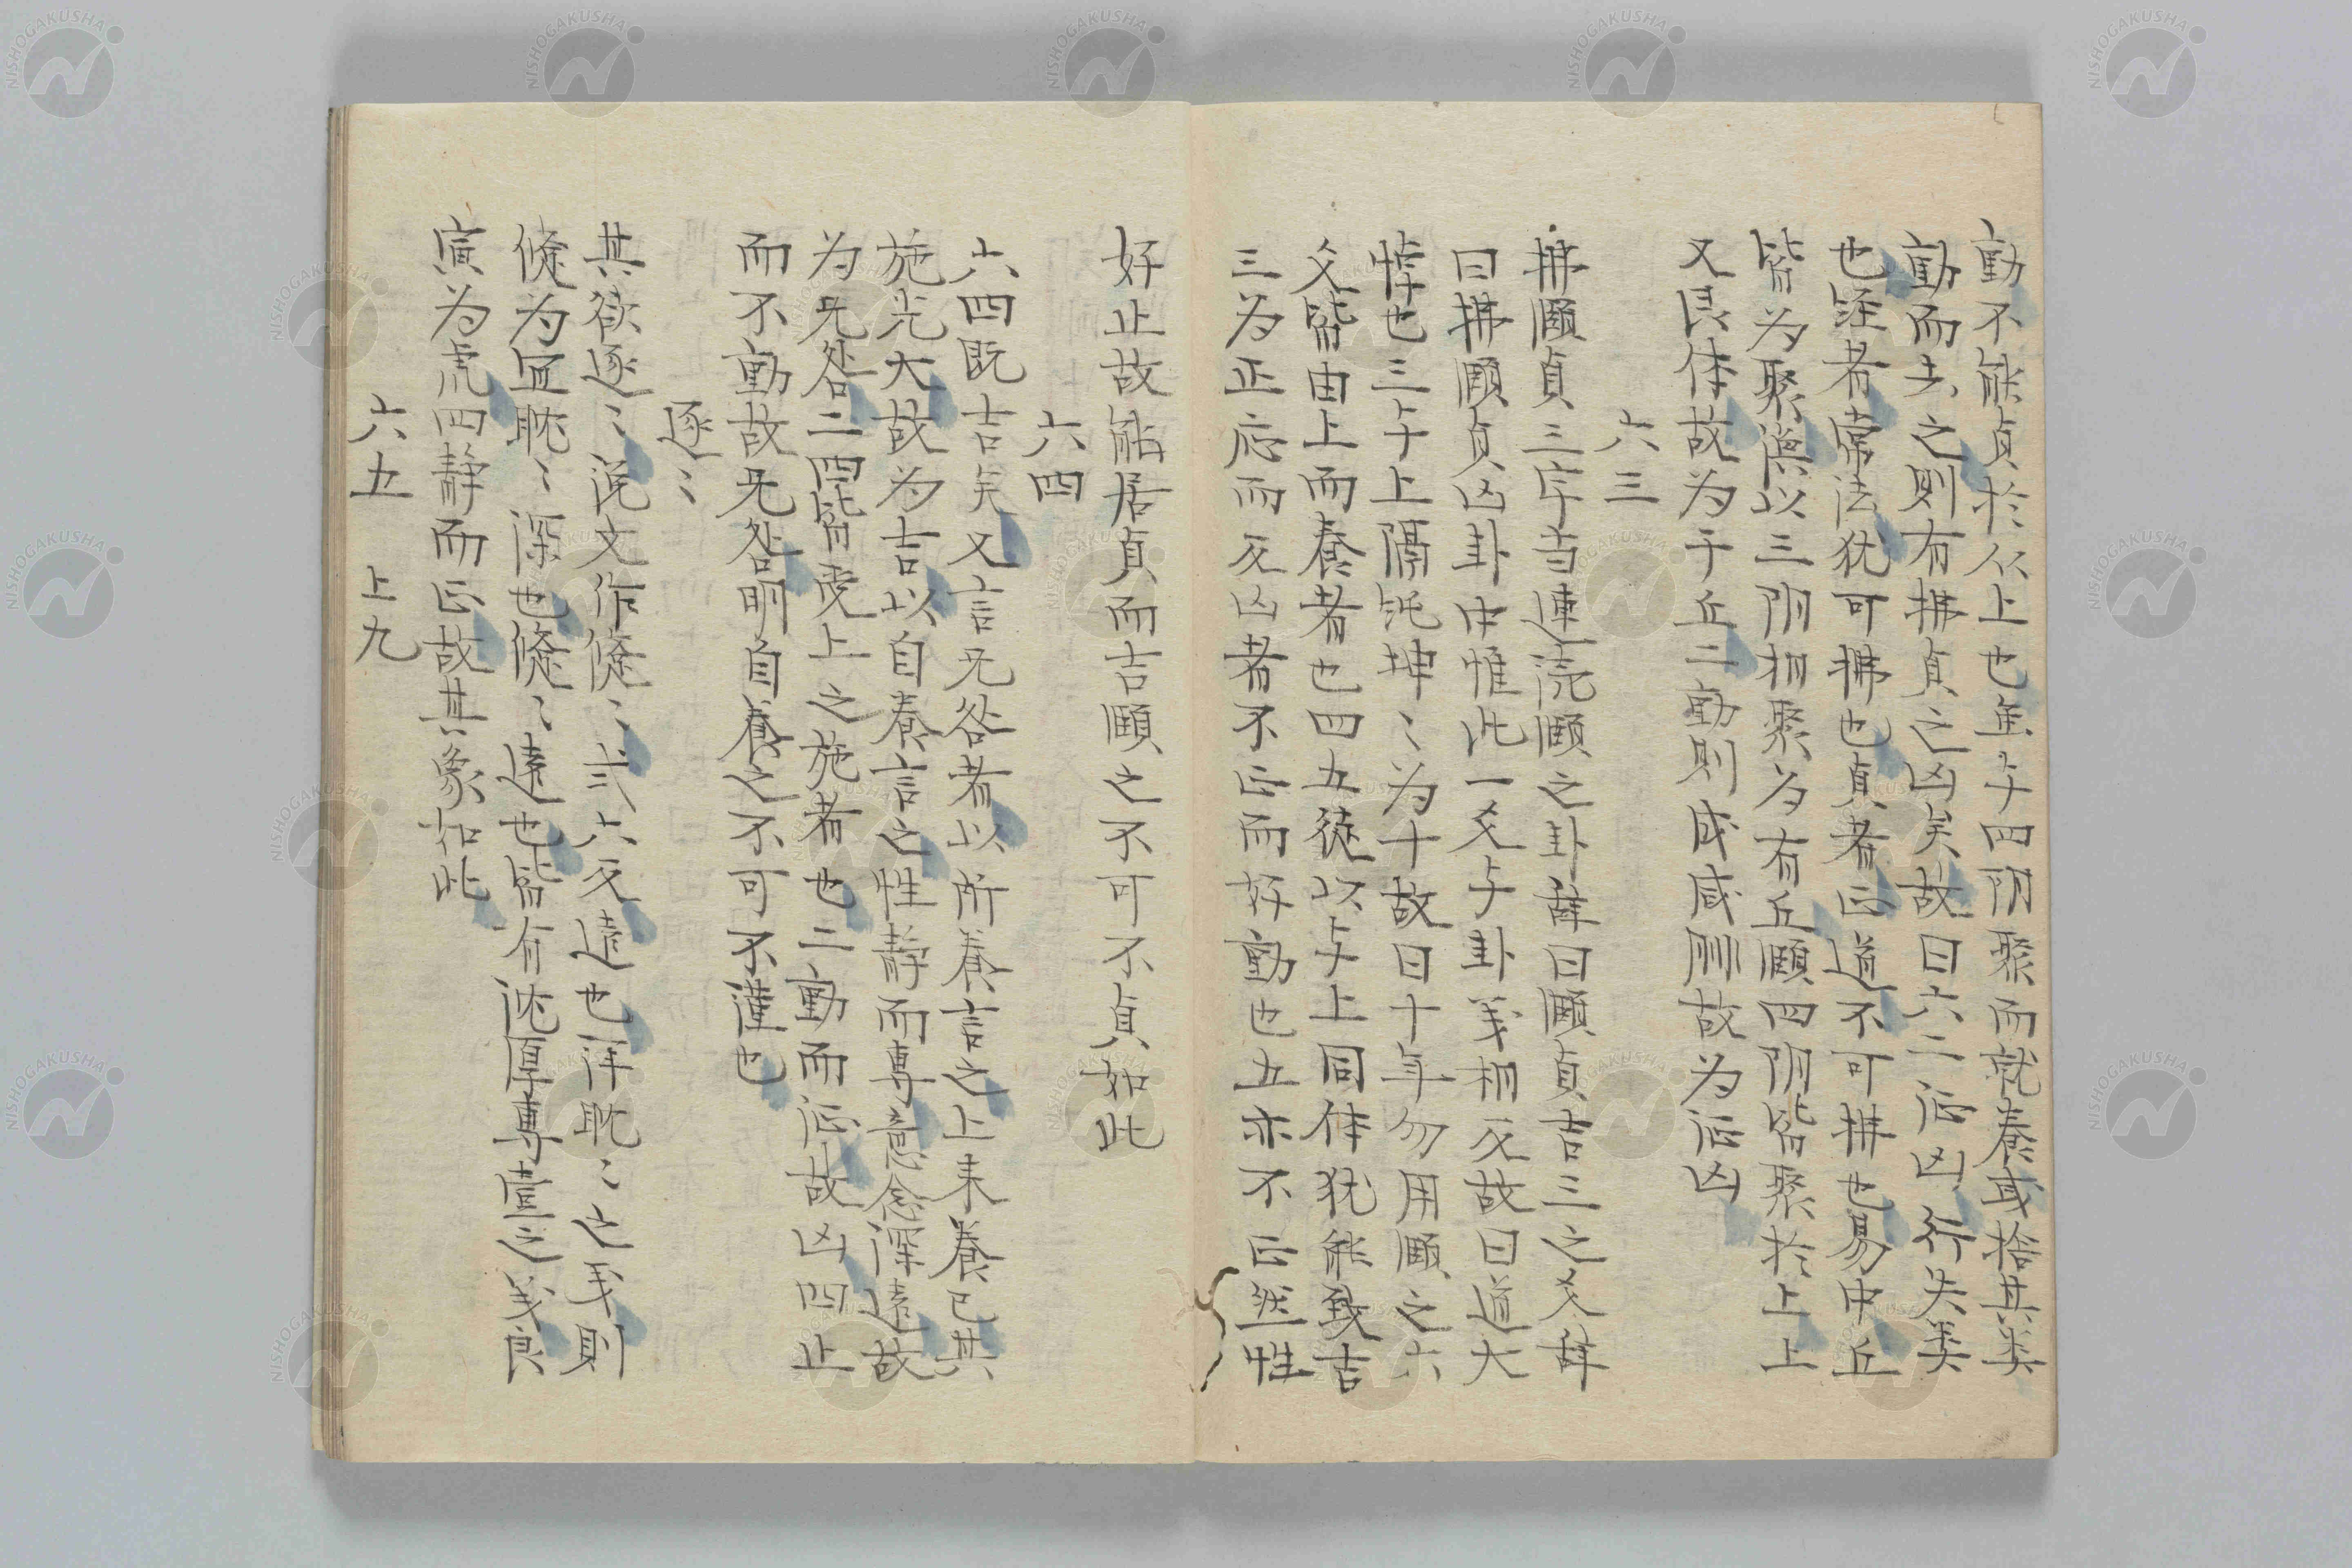 動不能貞於从上也虽与四阴聚而就養或捨其类
動而去之則有拂貞之凶矣故曰六二征凶行失类
也経者常法犹可拂也貞者正道不可拂也易中丘
皆為聚渙以三阴相聚為有丘頤四阴皆聚於上上
又艮体故為于丘二動則成咸刑故為征凶
六三
拂頤貞三字当連読頤之卦辞曰頤貞吉三之爻辞
曰拂頤貞凶卦中惟此一爻与卦义相反故曰道大
悖也三与上隔純坤〻為十故曰十年勿用頤之六
爻皆由上而養者也四五徒以与上同体犹能致吉
三為正応而反凶者不正而好動也五亦不正然性
好止故能居貞而吉頤之不可不貞如此
六四
六四既吉矣又言无咎者以所養言之上来養己其
施光大故為吉以自養言之性静而専意念深遠故
為无咎二四皆受上之施者也二動而征故凶四止
而不動故无咎明自養之不可不謹也
逐〻
其欲逐〻説文作儵〻弍六反遠也洋眈〻之义則
儵為宜眈〻深也儵〻遠也皆有沈厚専壹之义艮
寅為虎四静而正故其象如此
六五　上九